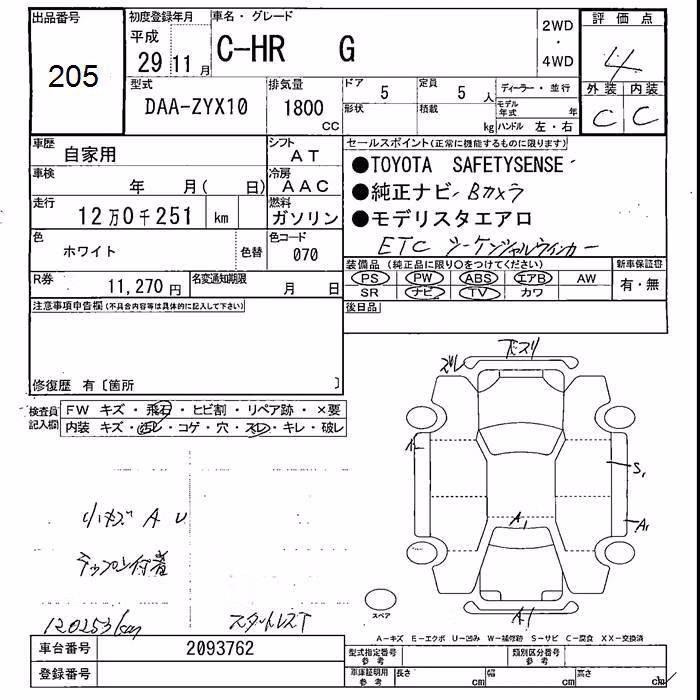 出品番号 初度登録年月 車名・グレード 2WD ・ 4WD 評価点
205 平成 29 11月 C-HR G 4
型式 排気量 ドア 定員 ディーラー・並行 外装 内装
DAA-ZYX10 1800 cc 5 5人 C C
形状 積載 kg モデル年式 年 ハンドル 左・右
車歴 自家用 シフト AT
車検 年 月( 日) 冷房 AAC
走行 12万0千251 km 燃料 ガソリン
色 ホワイト 色替 色コード 070
R券 11,270円 名変通知期限 月 日
セールスポイント(正常に機能するものに限ります)
●TOYOTA SAFETYSENSE
●純正ナビ Bカメラ
●モデリスタエアロ
ETC シーケンシャルウインカー
装備品 (純正品に限り○をつけてください) 新車保証書
PS PW ABS エアB AW 有・無
SR ナビ TV カワ
後日品
注意事項申告欄(不具合内容等は具体的に記入して下さい)
修復歴 有〔箇所 〕
検査員記入欄 FW キズ・飛石・ヒビ割・リペア跡・×要
内装 キズ・汚レ・コゲ・穴・スレ・キレ・破レ
ズレ
S1
A1
A1
A1
小キズ A U
120253km
スペア
A-キズ E-エクボ U-凹み W-補修跡 S-サビ C-腐食 XX-交換済
車台番号 2093762
登録番号
型式指定番号 参考 類別区分番号 参考
車庫証明用 参考 長さ cm 幅 cm 高さ cm